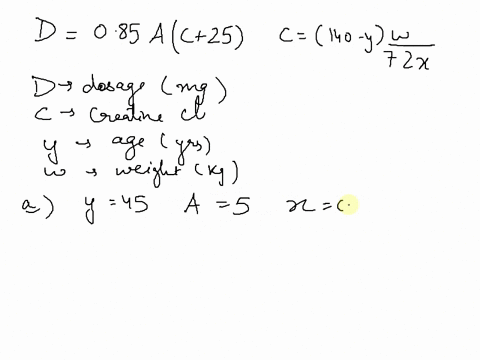 D = 0.85 A(c+25) c = (140-y) w/72x
D → dosage (mg)
C → Creatine Cl
y → age (yrs)
w → weight (kg)
a) y = 45 A = 5 x = 0.